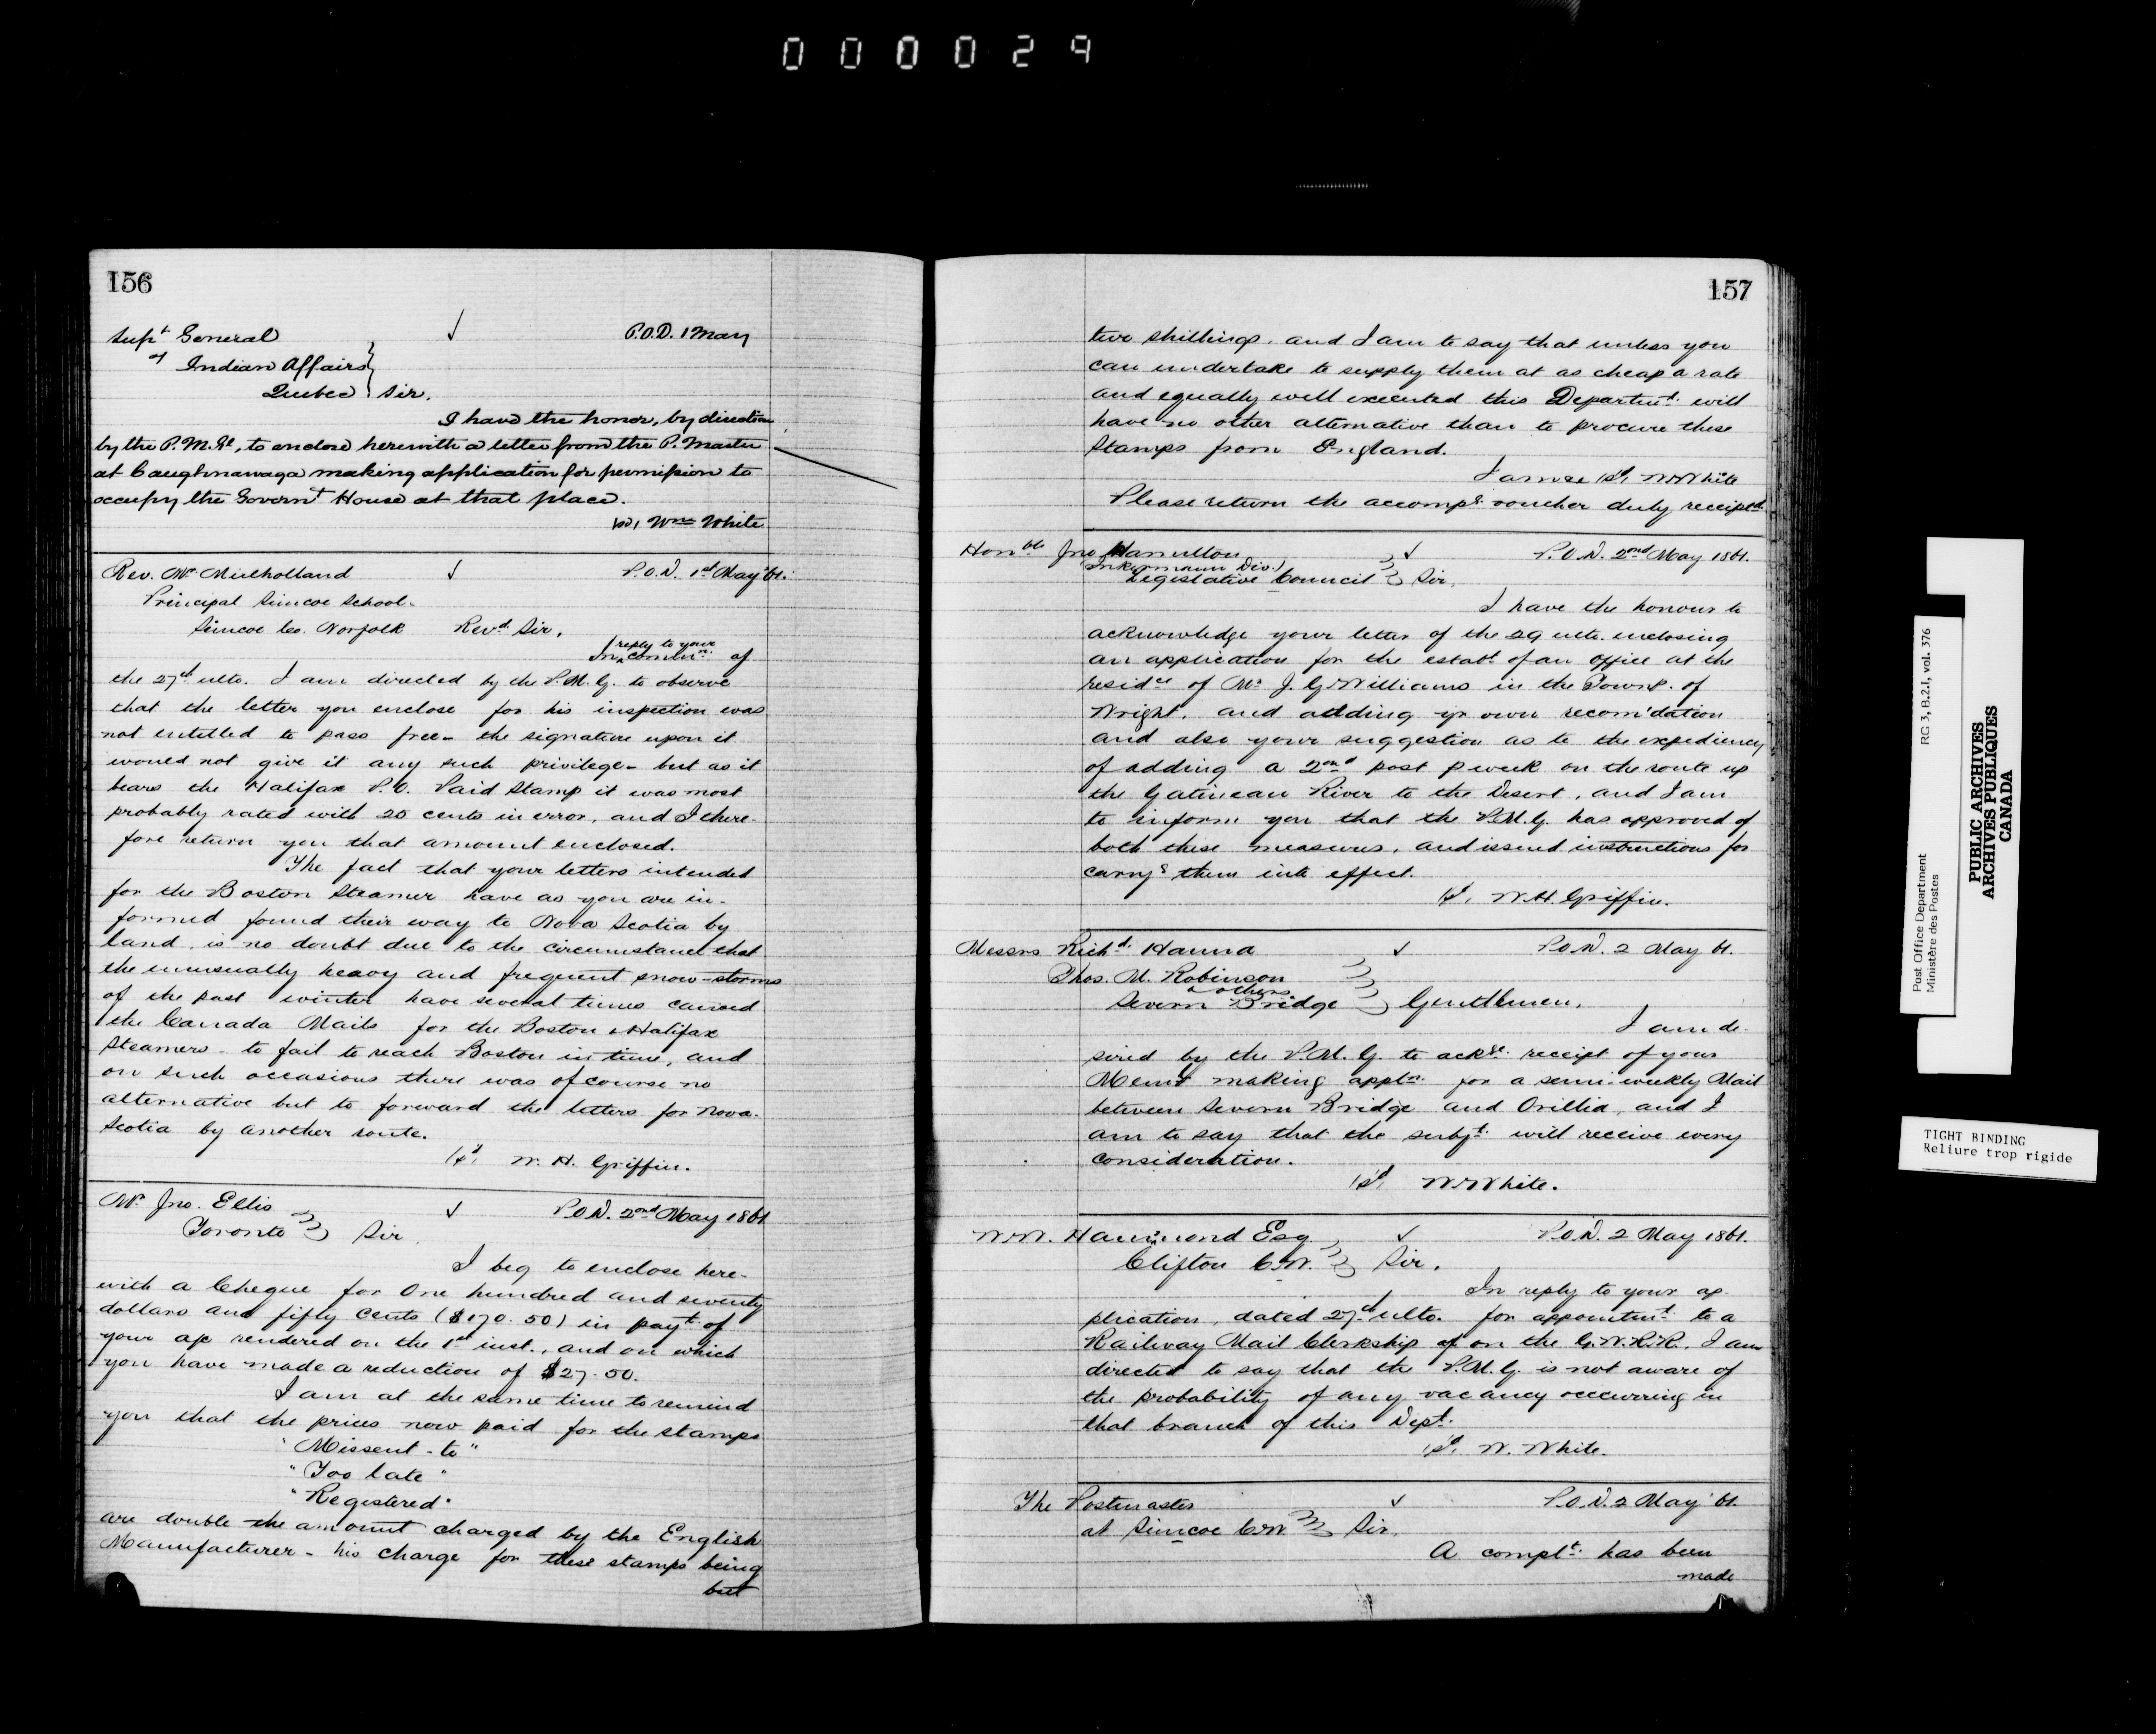 000029
156
Supt General ✓ P.O.D. 1 May
of Indian Affairs
Quebec Sir,
I have the honor, by direction
by the P.M.Gl, to enclose herewith a letter from the P. Master
at Caughnawaga making application for permission to
occupy the Governt House at that place.
sd, Wm White
Rev. Mr Mulholland ✓ P.O.D. 1st May '61.
Principal Simcoe School.
Simcoe Co. Norfolk Revd. Sir,
reply to your
In ^ commn. of
the 27th ulto. I am directed by the P.M.G. to observe
that the letter you enclose for his inspection was
not entitled to pass free - the signature upon it
would not give it any such privilege - but as it
bears the Halifax P.O. Paid Stamp it was most
probably rated with 25 cents in error, and I there-
fore return you that amount enclosed.
The fact that your letters intended
for the Boston Steamer have as you are in-
formed found their way to Nova Scotia by
land, is no doubt due to the circumstance that
the unusually heavy and frequent snow-storms
of the past winter have several times caused
the Canada Mails for the Boston & Halifax
Steamers - to fail to reach Boston in time, and
on such occasions there was of course no
alternative but to forward the letters for Nova-
Scotia by another route.
sd, W. H. Griffin.
Mr Jno. Ellis ✓ P.O.D. 2nd May 1861
Toronto Sir,
I beg to enclose here-
with a Cheque for One hundred and seventy
dollars and fifty cents ($170.50) in payt. of
your a/c rendered on the 1st inst., and on which
you have made a reduction of $27.50.
I am at the same time to remind
you that the prices now paid for the stamps
"Missent - to"
"Too late"
"Registered"
are double the amount charged by the English
Manufacturer - his charge for these stamps being
but
157
two shillings. and I am to say that unless you
can undertake to supply them at as cheap a rate
and equally well executed this Departmt. will
have no other alternative than to procure these
Stamps from England.
I am &c sd, W White
Please return the accompg. voucher duly receiptd.
Honble Jno Hamilton ✓ P.O.D. 2nd May 1861.
(Inkermann Div.)
Legislative Council Sir,
I have the honour to
acknowledge your letter of the 29 ulto. enclosing
an application for the estabt. of an Office at the
residce of Mr J. G. Williams in the Townp. of
Wright. and adding yr own recom'dation
and also your suggestion as to the expediency
of adding a 2nd post p week on the route up
the Gatineau River to the Desert, and I am
to inform you that the P.M.G. has approved of
both these measures, and issued instructions for
carryg them into effect.
sd, W. H. Griffin.
Messrs Richd. Hanna ✓ P.O.D. 2 May 61.
Thos. M. Robinson
& others
Severn Bridge Gentlemen,
I am de-
sired by the P.M.G. to ackge. receipt of your
Meml making appln. for a semi-weekly Mail
between Severn Bridge and Orillia, and I
am to say that the subjt. will receive every
consideration.
sd, W White.
W.W. Hammond Esq ✓ P.O.D. 2 May 1861.
Clifton C.W. Sir,
In reply to your ap-
plication, dated 27th ulto. for appointmt. to a
Railway Mail Clerkship of on the G.W.R.R. I am
directed to say that the P.M.G. is not aware of
the probability of any vacancy occurring in
that branch of this Dept.
sd, W. White.
The Postmaster ✓ P.O.D. 2 May 61.
at Simcoe C.W. Sir,
A complt. has been
made
Post Office Department RG 3, B.2.I, vol. 376
Ministère des Postes
PUBLIC ARCHIVES
ARCHIVES PUBLIQUES
CANADA
TIGHT BINDING
Reliure trop rigide